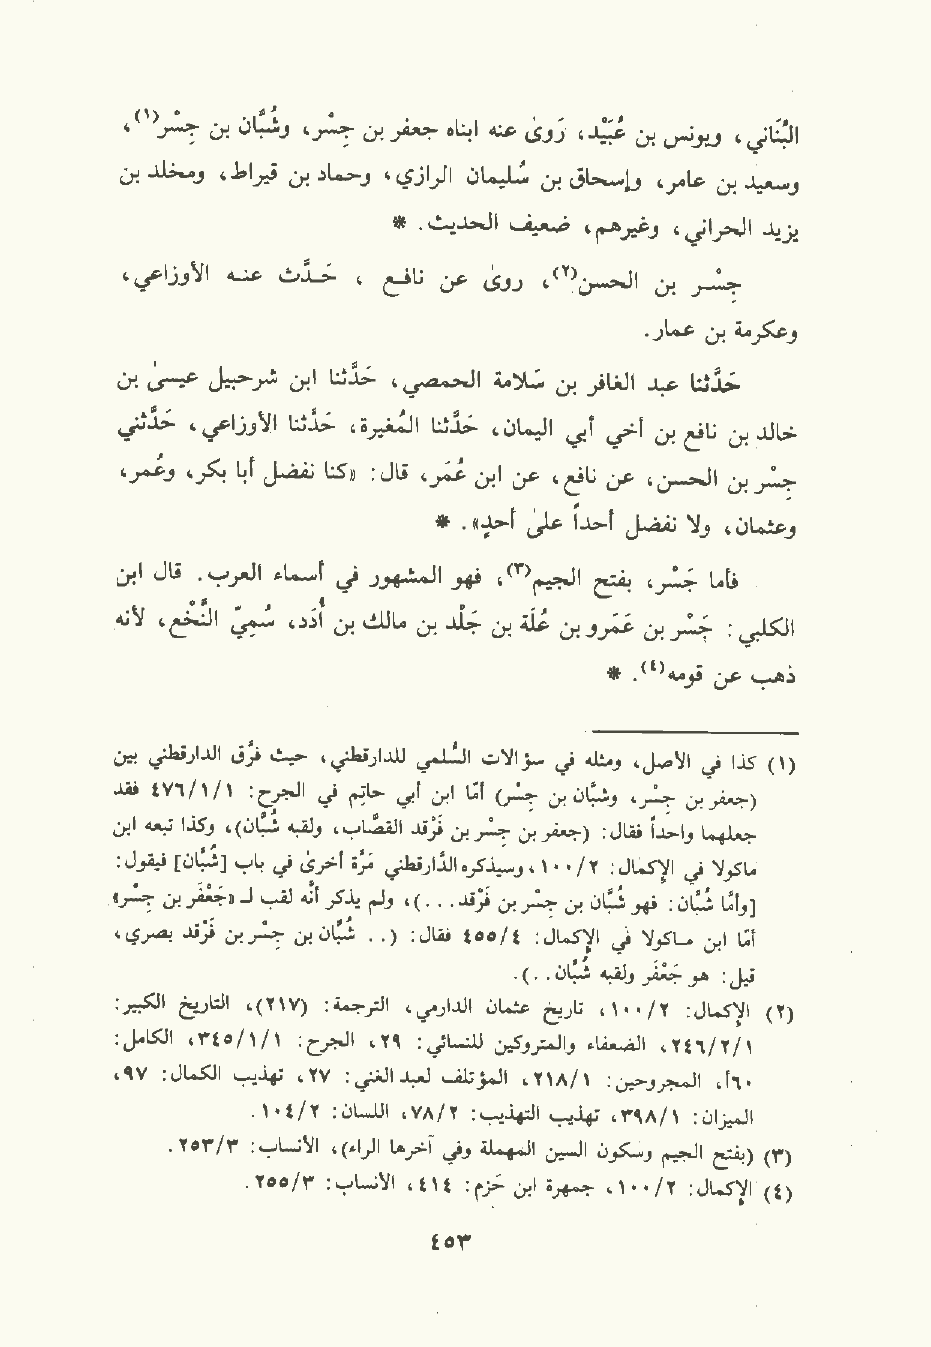 البُنَاني، ويونس بن عُبَيْد، رَوىٰ عنه ابناه جعفر بن جِسْر، وشُبَّان بن جِسْر(١)،
وسعيد بن عامر، وإسحاق بن سُليمان الرازي، وحماد بن قيراط، ومخلد بن
يزيد الحراني، وغيرهم، ضعيف الحديث. *
جِسْـر بن الحسن(٢)، روىٰ عن نافـع ، حَـدَّث عنـه الأوزاعي،
وعكرمة بن عمار.
حَدَّثنا عبد الغافر بن سَلامة الحمصي، حَدَّثنا ابن شرحبيل عيسىٰ بن
خالد بن نافع بن أخي أبي اليمان، حَدَّثنا المُغيرة، حَدَّثنا الأوزاعي، حَدَّثني
جِسْر بن الحسن، عن نافع، عن ابن عُمَر، قال: «كنا نفضل أبا بكر، وعُمر،
وعثمان، ولا نفضل أحداً علىٰ أحدٍ». *
فأما جَسْر، بفتح الجيم(٣)، فهو المشهور في أسماء العرب. قال ابن
الكلبي: جَسْر بن عَمَرو بن عُلَة بن جَلْد بن مالك بن أُدَد، سُمِيّ النَّخْع، لأنه
ذهب عن قومه(٤). *
(١) كذا في الأصل، ومثله في سؤالات السُّلمي للدارقطني، حيث فرَّق الدارقطني بين
(جعفر بن جِسْر، وشُبَّان بن جِسْر) أمّا ابن أبي حاتِم في الجرح: ١/١/٤٧٦ فقد
جعلهما واحداً فقال: (جعفر بن جِسْر بن فَرْقد القصَّاب، ولقبه شُبَّان)، وكذا تبعه ابن
ماكولا في الإكمال: ٢/١٠٠، وسيذكره الدَّارقطني مَرَّة أخرىٰ في باب [شُبَّان] فيقول:
[وأمَّا شُبَّان: فهو شُبَّان بن جِسْر بن فَرْقد...)، ولم يذكر أنَّه لقب لـ «جَعْفَر بن جِسْر»
أمّا ابن ماكولا في الإكمال: ٤/٤٥٥ فقال: (.. شُبَّان بن جِسْر بن فَرْقد بصري،
قيل: هو جَعْفَر ولقبه شُبَّان..).
(٢) الإكمال: ٢/١٠٠، تاريخ عثمان الدارمي، الترجمة: (٢١٧)، التاريخ الكبير:
١/٢/٢٤٦، الضعفاء والمتروكين للنسائي: ٢٩، الجرح: ١/١/٣٤٥، الكامل:
٦٠أ، المجروحين: ١/٢١٨، المؤتلف لعبد الغني: ٢٧، تهذيب الكمال: ٩٧،
الميزان: ١/٣٩٨، تهذيب التهذيب: ٢/٧٨، اللسان: ٢/١٠٤.
(٣) (بفتح الجيم وسكون السين المهملة وفي آخرها الراء)، الأنساب: ٣/٢٥٣.
(٤) الإكمال: ٢/١٠٠، جمهرة ابن حَزم: ٤١٤، الأنساب: ٣/٢٥٥.
٤٥٣